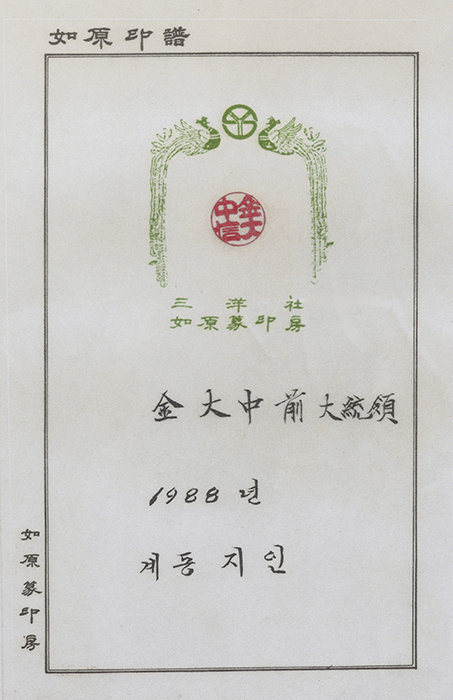 如原印譜
金大
中信
三洋社
如原篆印房
金大中前大統領
1988 년
계동 지인
如原篆印房